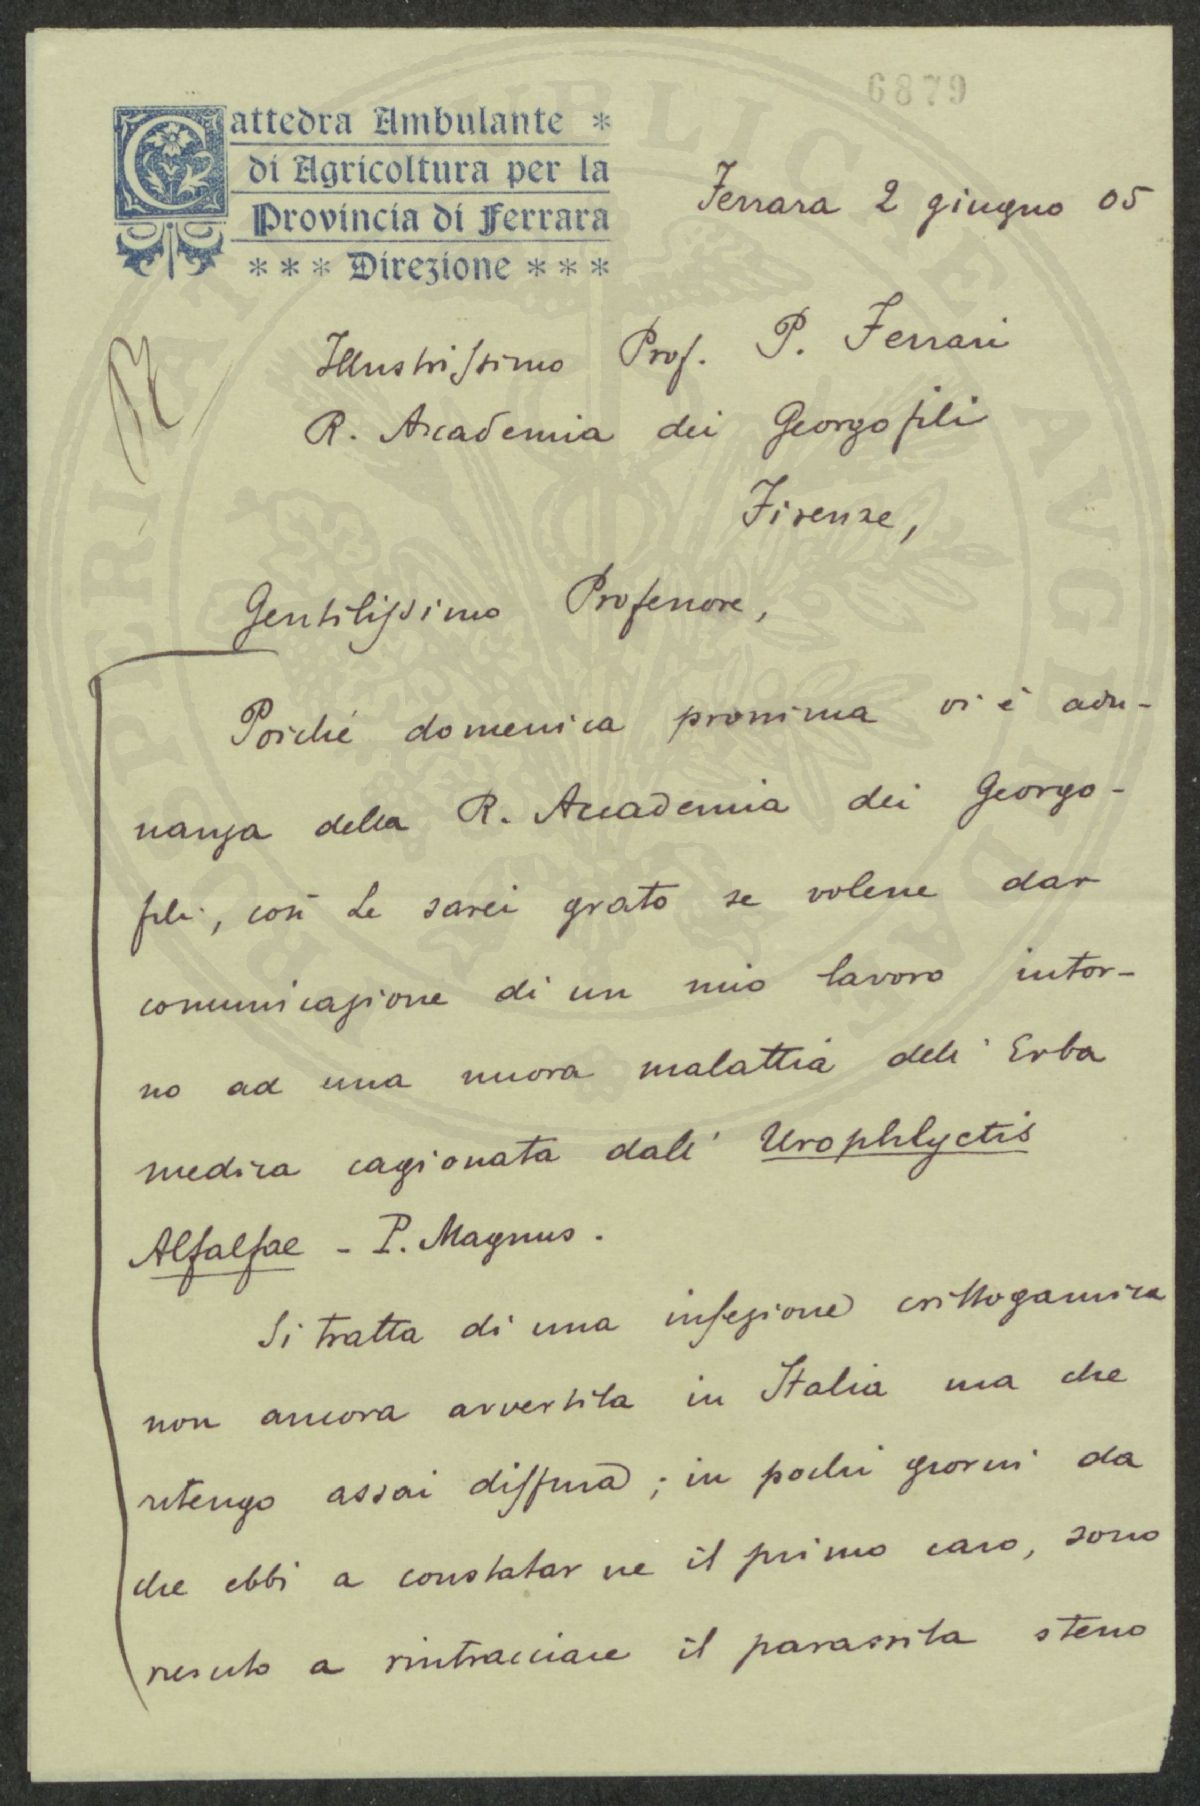 6879
Cattedra Ambulante *
di Agricoltura per la
Provincia di Ferrara
* * * Direzione * * *
Ferrara 2 giugno 05
Illustrissimo Prof. P. Ferrari
R. Accademia dei Georgofili
Firenze,
Gentilissimo Professore,
Poiché domenica prossima vi è adu-
nanza della R. Accademia dei Georgo-
fili, così Le sarei grato se volesse dar
comunicazione di un mio lavoro intor-
no ad una nuova malattia dell' Erba
medica cagionata dall' Urophlyctis
Alfalfae - P. Magnus.
Si tratta di una infezione crittogamica
non ancora avvertita in Italia ma che
ritengo assai diffusa; in pochi giorni da
che ebbi a constatarne il primo caso, sono
riescito a rintracciare il parassita stesso